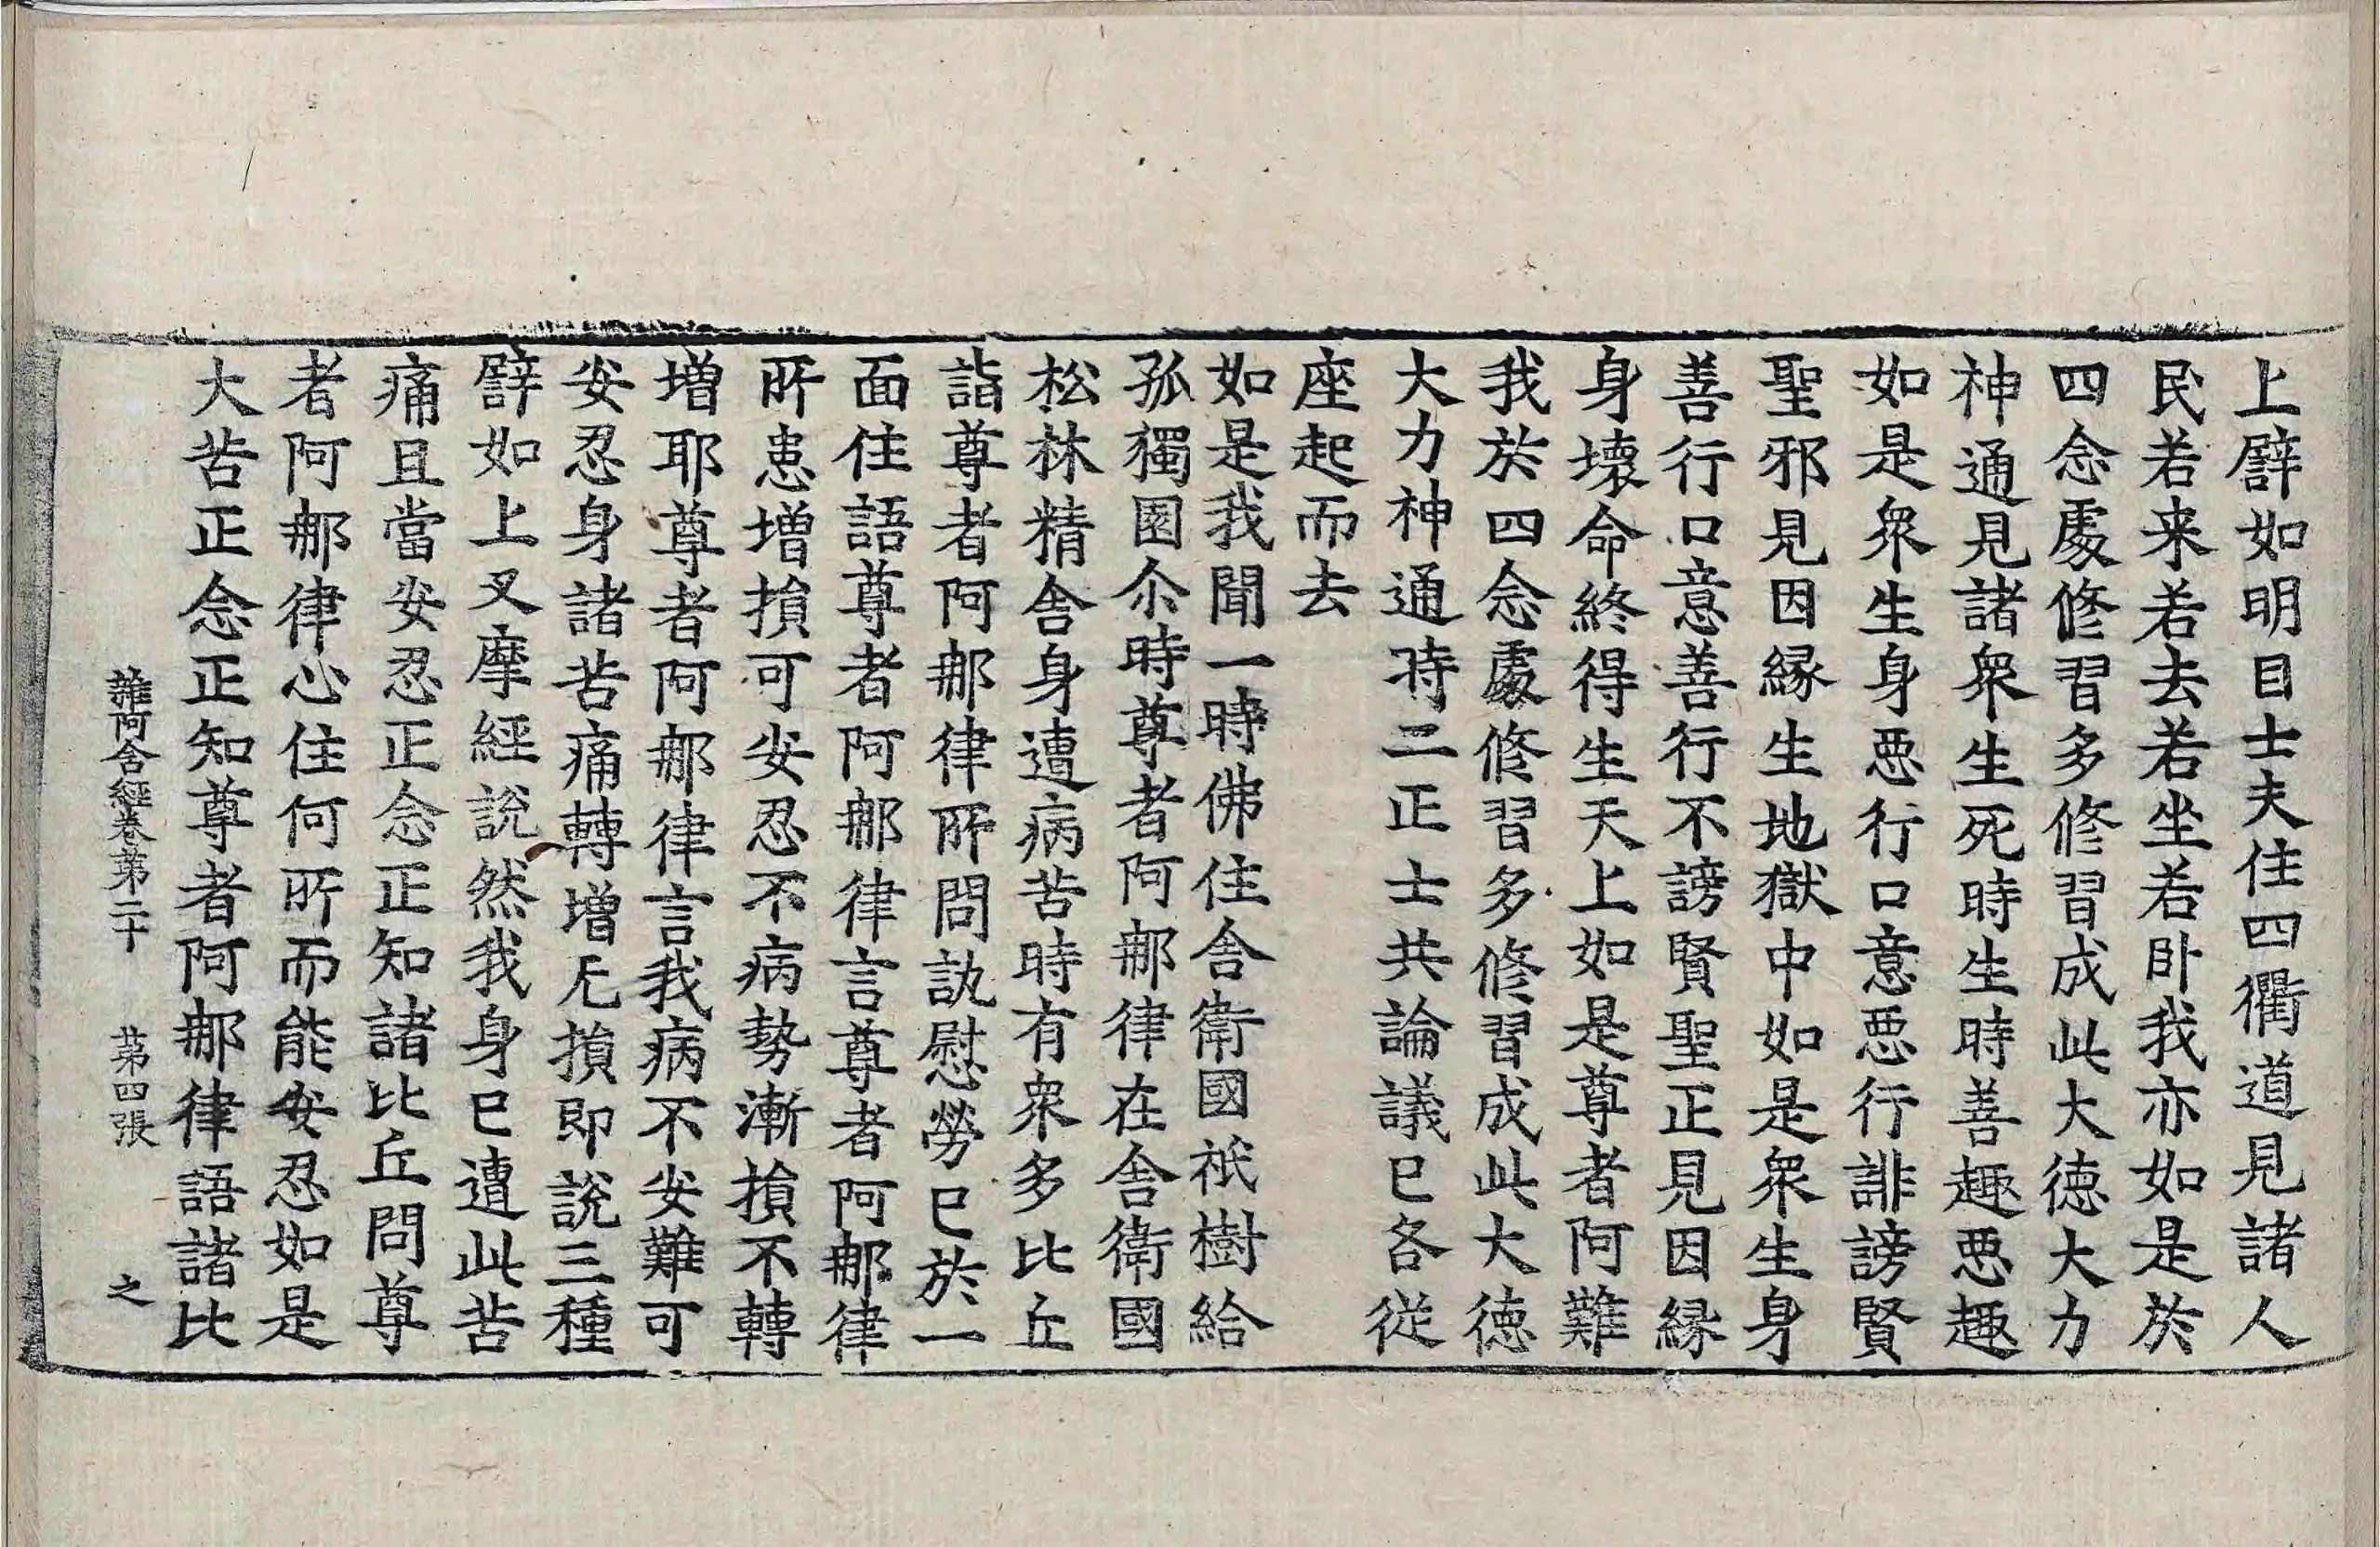 上譬如明目士夫住四衢道見諸人
民若来若去若坐若卧我亦如是於
四念處修習多修習成此大德大力
神通見諸衆生死時生時善趣惡趣
如是衆生身惡行口意惡行誹謗賢
聖邪見因縁生地獄中如是衆生身
善行口意善行不謗賢聖正見因縁
身壞命終得生天上如是尊者阿難
我於四念處修習多修習成此大德
大力神通時二正士共論議已各從
座起而去
如是我聞一時佛住舍衛國祇樹給
孤獨園尒時尊者阿那律在舍衛國
松林精舍身遭病苦時有衆多比丘
詣尊者阿那律所問訊慰勞已於一
面住語尊者阿那律言尊者阿那律
所患增損可安忍不病勢漸損不轉
增耶尊者阿那律言我病不安難可
安忍身諸苦痛轉增无損即說三種
譬如上叉摩經說然我身已遭此苦
痛且當安忍正念正知諸比丘問尊
者阿那律心住何所而能安忍如是
大苦正念正知尊者阿那律語諸比
雜阿含經卷第二十 第四張 之